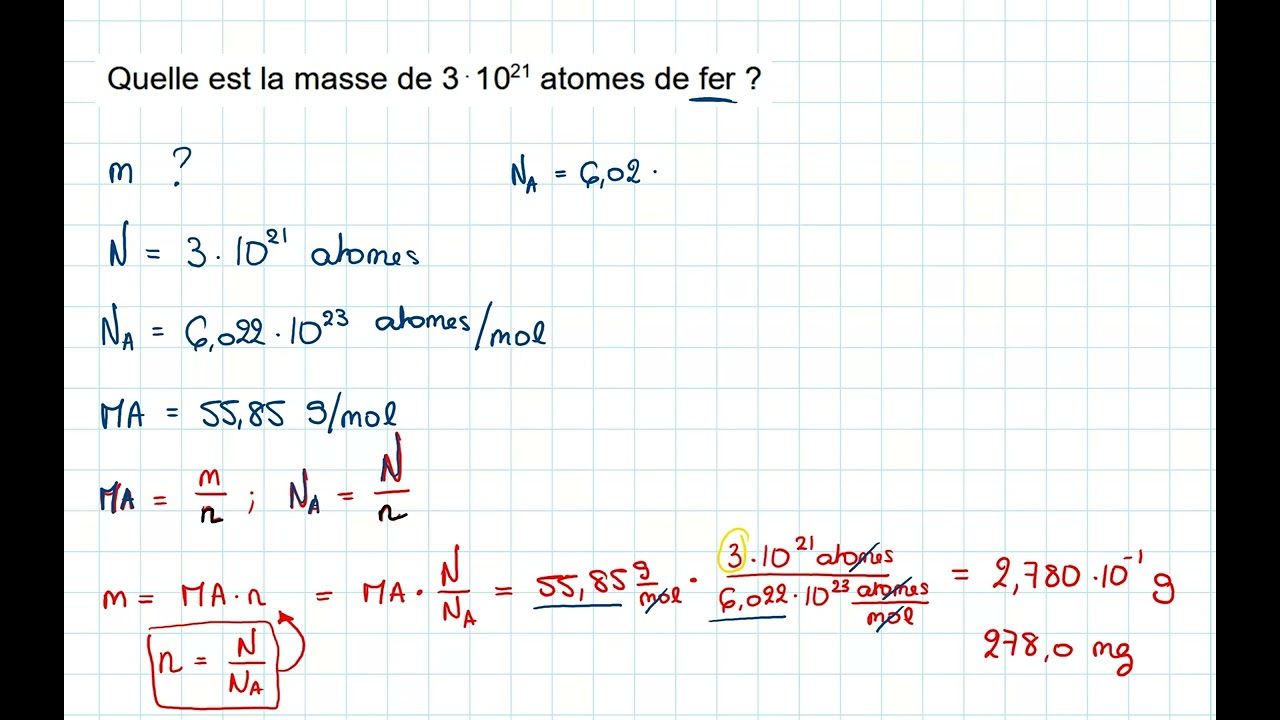 Quelle est la masse de 3·10²¹ atomes de fer ?
m ?
N_A = 6,02 ·
N = 3·10²¹ atomes
N_A = 6,022·10²³ atomes/mol
MA = 55,85 g/mol
MA = m/n ; N_A = N/n
m = MA·n = MA·N/N_A = 55,85 g/mol · 3·10²¹ atomes / 6,022·10²³ atomes/mol = 2,780·10⁻¹ g
n = N/N_A
278,0 mg